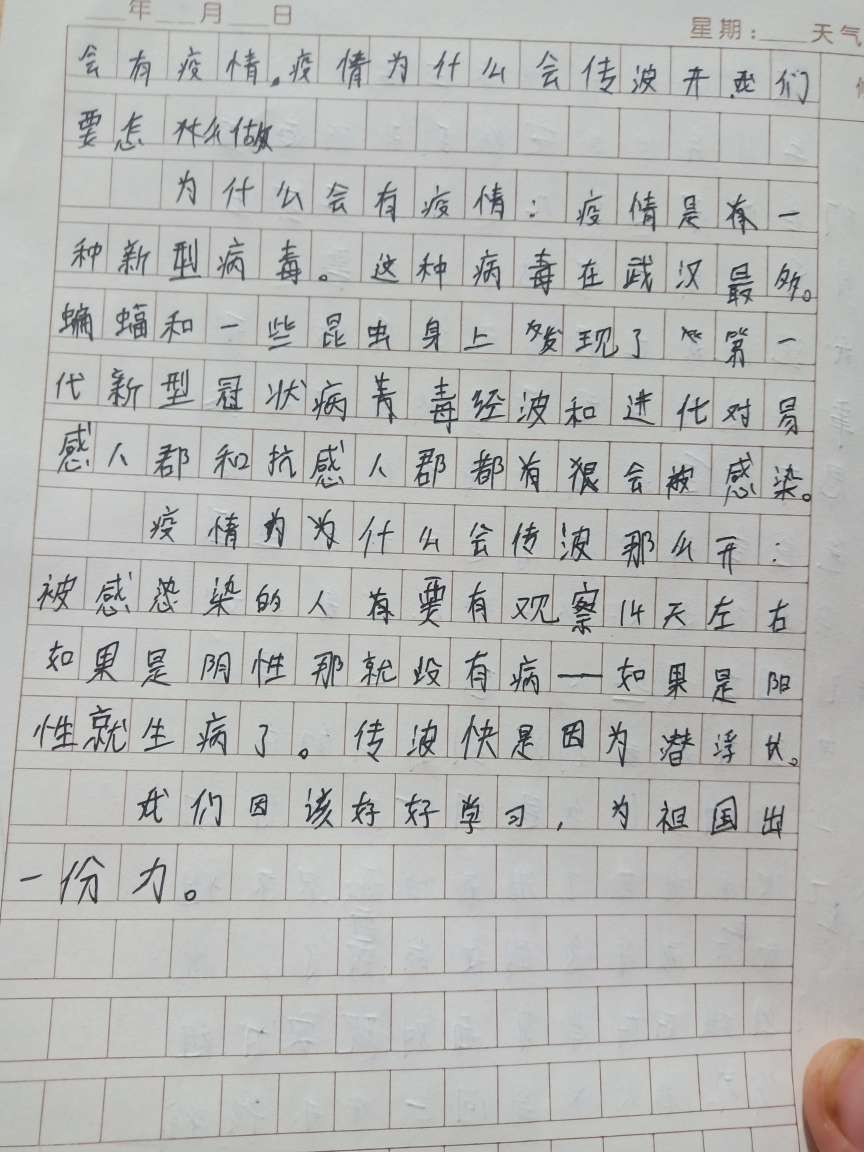 年 月 日
星期： 天气
会有疫情。疫情为什么会传波开我们
要怎什么做
为什么会有疫情：疫情是有一
种新型病毒。这种病毒在武汉最多。
蝙蝠和一些昆虫身上发现了“第一
代新型冠状病毒经波和进化对易
感人郡和抗感人郡都有狠会被感染。
疫情为什么会传波那么开：
被感染的人要有观察14天左右
如果是阴性那就没有病——如果是阳
性就生病了。传波快是因为潜浮大。
我们因该好好学习，为祖国出
一份力。